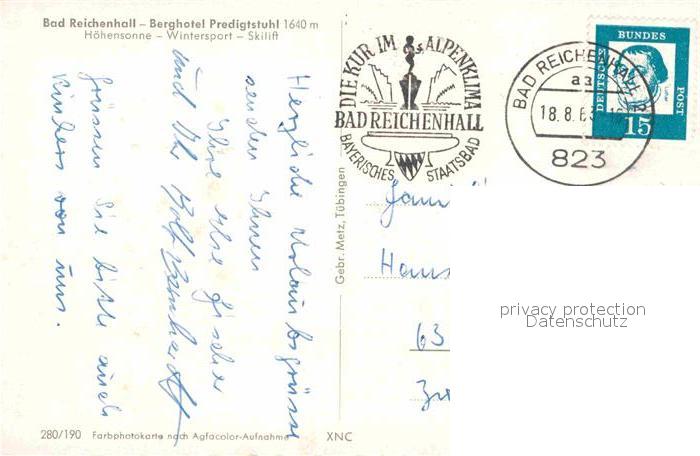 Bad Reichenhall – Berghotel Predigtstuhl 1640 m
Höhensonne – Wintersport – Skilift
Herzliche Urlaubsgrüsse
senden Ihnen
Ihre Else Fischer
und Ihr Rolf
Grüssen Sie bitte auch
Kinders von uns.
280/190 Farbphotokarte nach Agfacolor-Aufnahme XNC
Gebr. Metz, Tübingen
DIE KUR IM ALPENKLIMA
BAD REICHENHALL
BAYERISCHES STAATSBAD
BAD REICHENHALL
18.8.63
823
DEUTSCHE BUNDESPOST
15
Hans
63
privacy protection
Datenschutz